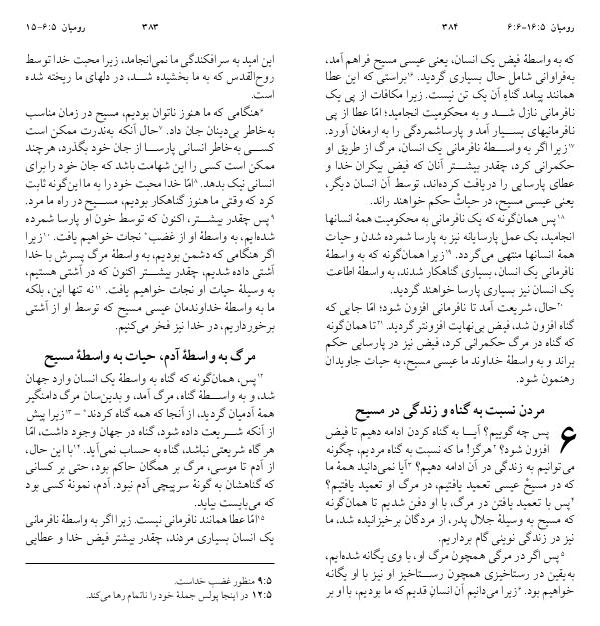 ۳۸۳ رومیان ۶:۵-۱۵
این امید به سرافکندگی ما نمی‌انجامد، زیرا محبت خدا توسط
روح‌القدس که به ما بخشیده شد، در دلهای ما ریخته شده
است.
۶هنگامی که ما هنوز ناتوان بودیم، مسیح در زمان مناسب
به‌خاطر بی‌دینان جان داد. ۷حال آنکه به‌ندرت ممکن است
کسی به‌خاطر انسانی پارسا از جان خود بگذرد، هرچند
ممکن است کسی را این شهامت باشد که جان خود را برای
انسانی نیک بدهد. ۸امّا خدا محبت خود را به ما این‌گونه ثابت
کرد که وقتی ما هنوز گناهکار بودیم، مسیح در راه ما مرد.
۹پس چقدر بیشتر، اکنون که توسط خون او پارسا شمرده
شده‌ایم، به واسطۀ او از غضب* نجات خواهیم یافت. ۱۰زیرا
اگر هنگامی که دشمن بودیم، به واسطۀ مرگ پسرش با خدا
آشتی داده شدیم، چقدر بیشتر اکنون که در آشتی هستیم،
به وسیلۀ حیات او نجات خواهیم یافت. ۱۱نه تنها این، بلکه
ما به واسطۀ خداوندمان عیسی مسیح که توسط او از آشتی
برخورداریم، در خدا نیز فخر می‌کنیم.
مرگ به واسطۀ آدم، حیات به واسطۀ مسیح
۱۲پس، همان‌گونه که گناه به واسطۀ یک انسان وارد جهان
شد، و به واسطۀ گناه، مرگ آمد، و بدین‌سان مرگ دامنگیر
همۀ آدمیان گردید، از آنجا که همه گناه کردند* - ۱۳زیرا پیش
از آنکه شریعت داده شود، گناه در جهان وجود داشت، امّا
هر گاه شریعتی نباشد، گناه به حساب نمی‌آید. ۱۴با این حال،
از آدم تا موسی، مرگ بر همگان حاکم بود، حتی بر کسانی
که گناهشان به گونۀ سرپیچی آدم نبود. آدم، نمونۀ کسی بود
که می‌بایست بیاید.
۱۵امّا عطا همانند نافرمانی نیست. زیرا اگر به واسطۀ نافرمانی
یک انسان بسیاری مردند، چقدر بیشتر فیض خدا و عطایی
۹:۵ منظور غضب خداست.
۱۲:۵ در اینجا پولس جملۀ خود را ناتمام رها می‌کند.
رومیان ۱۶:۵-۶:۶ ۳۸۴
که به واسطۀ فیض یک انسان، یعنی عیسی مسیح فراهم آمد،
به‌فراوانی شامل حال بسیاری گردید. ۱۶براستی که این عطا
همانند پیامد گناهِ آن یک تن نیست. زیرا مکافات از پی یک
نافرمانی نازل شد و به محکومیت انجامید؛ امّا عطا از پی
نافرمانیهای بسیار آمد و پارساشمردگی را به ارمغان آورد.
۱۷زیرا اگر به واسطۀ نافرمانی یک انسان، مرگ از طریق او
حکمرانی کرد، چقدر بیشتر آنان که فیض بیکران خدا و
عطای پارسایی را دریافت کرده‌اند، توسط آن انسان دیگر،
یعنی عیسی مسیح، در حیات حکم خواهند راند.
۱۸پس همان‌گونه که یک نافرمانی به محکومیت همۀ انسانها
انجامید، یک عمل پارسایانه نیز به پارسا شمرده شدن و حیات
همۀ انسانها منتهی می‌گردد. ۱۹زیرا همان‌گونه که به واسطۀ
نافرمانی یک انسان، بسیاری گناهکار شدند، به واسطۀ اطاعت
یک انسان نیز بسیاری پارسا خواهند گردید.
۲۰حال، شریعت آمد تا نافرمانی افزون شود؛ امّا جایی که
گناه افزون شد، فیض بی‌نهایت افزونتر گردید. ۲۱تا همان‌گونه
که گناه در مرگ حکمرانی کرد، فیض نیز در پارسایی حکم
براند و به واسطۀ خداوند ما عیسی مسیح، به حیات جاویدان
رهنمون شود.
مردن نسبت به گناه و زندگی در مسیح
۶ پس چه گوییم؟ آیا به گناه کردن ادامه دهیم تا فیض
افزون شود؟ ۲هرگز! ما که نسبت به گناه مردیم، چگونه
می‌توانیم به زندگی در آن ادامه دهیم؟ ۳آیا نمی‌دانید همۀ ما
که در مسیحْ عیسی تعمید یافتیم، در مرگ او تعمید یافتیم؟
۴پس با تعمید یافتن در مرگ، با او دفن شدیم تا همان‌گونه
که مسیح به وسیلۀ جلال پدر، از مردگان برخیزانیده شد، ما
نیز در زندگی نوینی گام برداریم.
۵پس اگر در مرگی همچون مرگ او، با وی یگانه شده‌ایم،
به‌یقین در رستاخیزی همچون رستاخیز او نیز با او یگانه
خواهیم بود. ۶زیرا می‌دانیم آن انسانِ قدیم که ما بودیم، با او بر